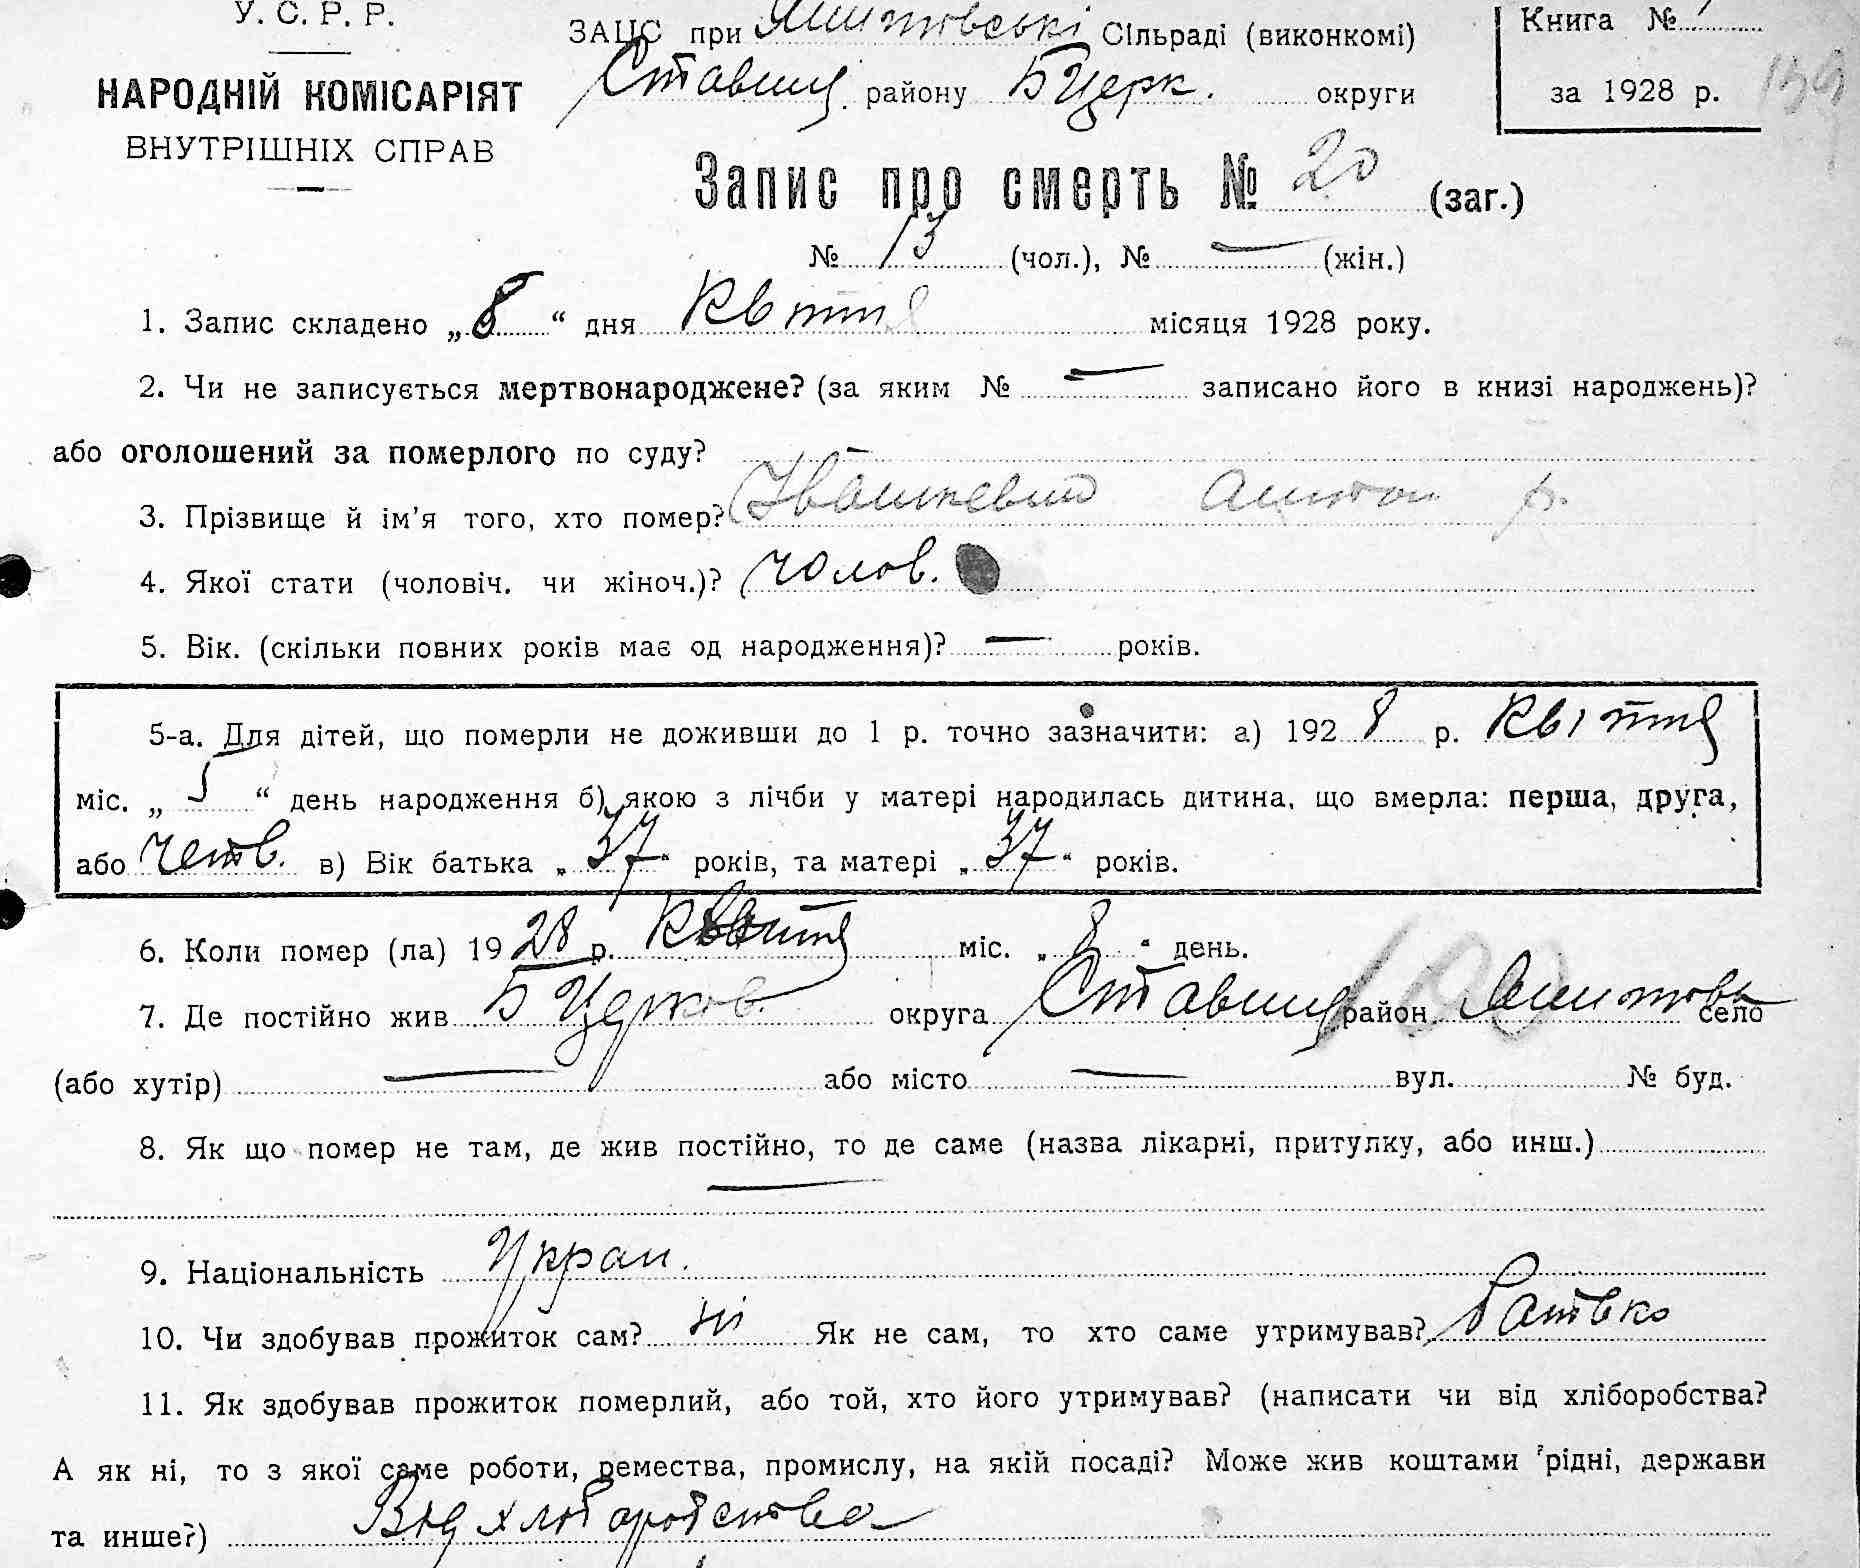 У. С. Р. Р.
НАРОДНІЙ КОМІСАРІЯТ
ВНУТРІШНІХ СПРАВ
ЗАЦС при Сільраді (виконкомі)
Ставищ. району Б Церк. округи
Книга №
за 1928 р.
139
Запис про смерть № 20 (заг.)
№ 13 (чол.), № — (жін.)
1. Запис складено „ 8 “ дня Квітня місяця 1928 року.
2. Чи не записується мертвонароджене? (за яким № — записано його в книзі народжень)?
або оголошений за померлого по суду? —
3. Прізвище й ім'я того, хто помер? Івашкевич Антон
4. Якої стати (чоловіч. чи жіноч.)? чолов.
5. Вік. (скільки повних років має од народження)? — років.
5-а. Для дітей, що померли не доживши до 1 р. точно зазначити: а) 1928 р. Квітня
міс. „ 5 “ день народження б) якою з лічби у матері народилась дитина, що вмерла: перша, друга,
або четв. в) Вік батька „ 37 “ років, та матері „ 37 “ років.
6. Коли помер (ла) 1928 р. Квітня міс. „ 8 “ день.
7. Де постійно жив Б Церков. округа Ставищ район село
(або хутір) — або місто — вул. № буд.
8. Як що помер не там, де жив постійно, то де саме (назва лікарні, притулку, або инш.)
—
9. Національність Украп.
10. Чи здобував прожиток сам? ні Як не сам, то хто саме утримував? батько
11. Як здобував прожиток померлий, або той, хто його утримував? (написати чи від хліборобства?
А як ні, то з якої саме роботи, ремества, промислу, на якій посаді? Може жив коштами рідні, держави
та инше?) Від хліборобства